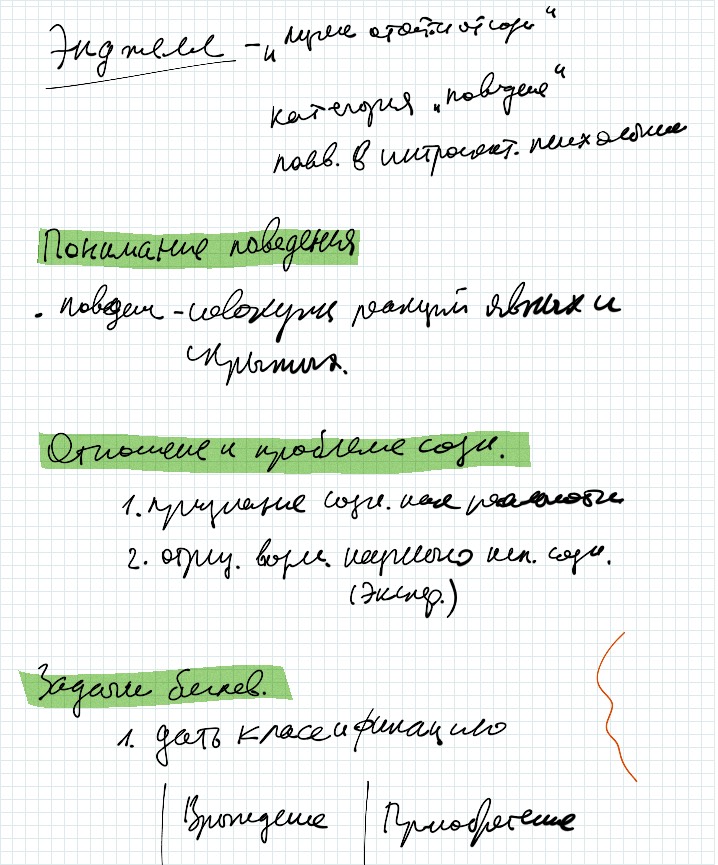 Энджелл – „лучше отойти от созн“
категория „поведение“
появ. в интроспект. психологии
Понимание поведения
• поведен – совокупн реакций явных и
скрытых.
Отношение к проблеме созн.
1. признание созн. как реальности
2. отриц. возм. научного исп. созн.
(Экспер.)
Задачи бихев.
1. дать классификацию
Врожденные Приобретенные